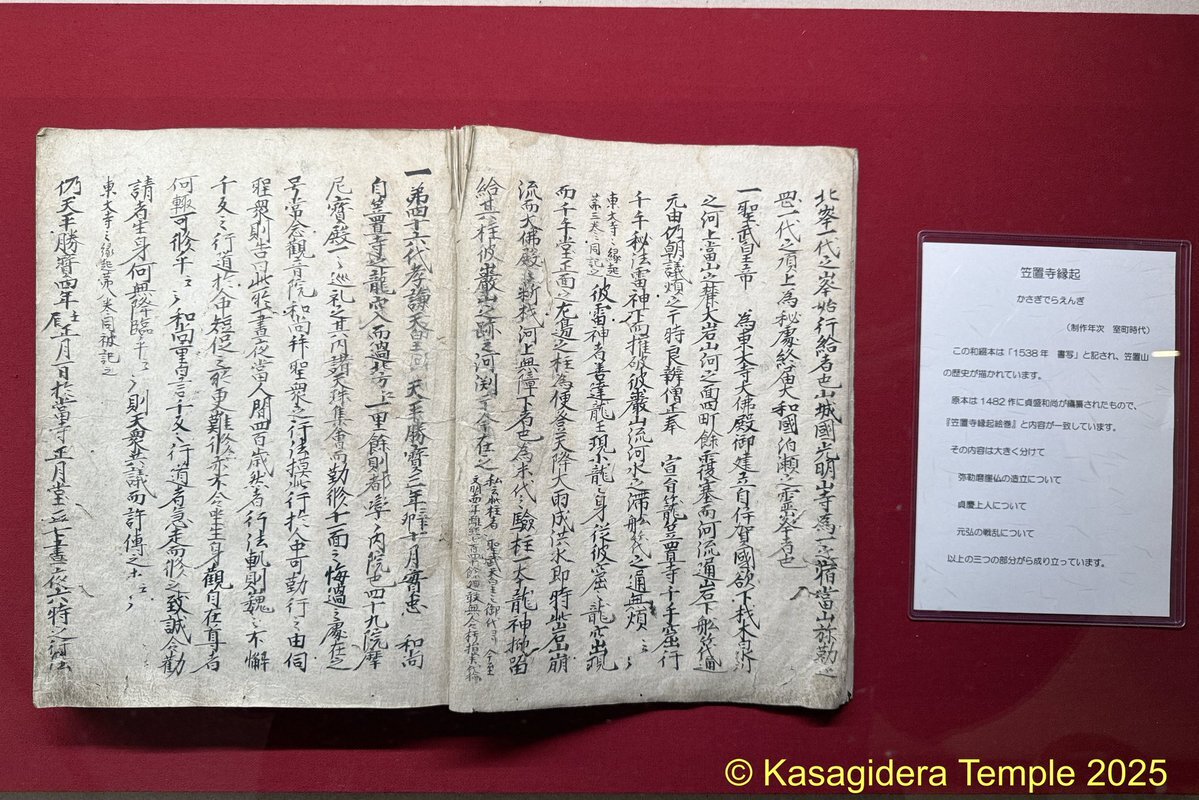 北峯一代之峯始行給名也山城國光明山寺為一之宿當山弥勒之
一代之頂上為秘處終届大和國泊瀬之霊峯者也
一聖武皇帝 為東大寺大佛殿御建立自伊賀國欲下材木
之河上當山之麓大岩山河之面四町餘覆塞而河流通岩下船筏通
元由仍朝議煩之于時良辨僧正奉 宣自籠笠置寺千手窟行
千手秘法雷神下而摧破彼巖山流河水之滞船筏之通無煩
東大寺之縁起
第三巻之同記之
彼雷神者善達龍王現小龍之身従彼窟之龍穴出現
而千手堂正面之左邊之柱為便登天降大雨成洪水即時岩山崩
流而大佛殿材河上無障下者也為末代之驗柱一本龍神
給其柱彼巖山之跡之河渕于今在之
一第四十六代孝謙天皇 天平勝寳三年辛卯十月實忠 和尚
自笠置寺龍穴入而過北方一里餘則都率之内院也四十九院摩
尼寳殿一一巡礼之其内諸天殊集會而勤修十一面之悔過之處在之
号常念觀音院和尚拜聖衆之行法摸此行於人中可勤行之由伺
聖衆則告曰此所一晝夜當人間四百歳然者行法軌則巍々不懈
千反之行道於人中短促之所更難修亦不令坐生身觀自在尊者
何輙可修乎云云和尚重白言千反之行道者急走而修之致誠令勸
請者生身何無降臨乎云云則天衆共議而許傳之云云
東大寺之縁起第八巻同被記之
仍天平勝寳四年壬辰正月一日於當寺正月堂 七晝夜六時之行法
笠置寺縁起
かさぎでらえんぎ
（制作年次 室町時代）
この和綴本は「1538年 書写」と記され、笠置山
の歴史が描かれています。
原本は1482作に貞盛和尚が編纂されたもので、
『笠置寺縁起絵巻』と内容が一致しています。
その内容は大きく分けて
弥勒磨崖仏の造立について
貞慶上人について
元弘の戦乱について
以上の三つの部分がら成り立っています。
© Kasagidera Temple 2025